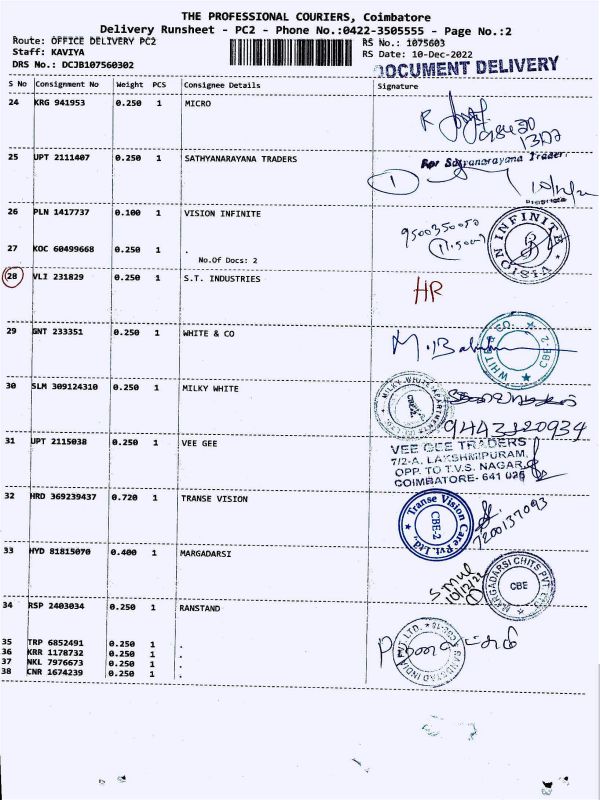 THE PROFESSIONAL COURIERS, Coimbatore
Delivery Runsheet - PC2 - Phone No.:0422-3505555 - Page No.:2
Route: OFFICE DELIVERY PC2 RS No.: 1075603
Staff: KAVIYA RS Date: 10-Dec-2022
DRS No.: DCJB107560302 DOCUMENT DELIVERY
S No Consignment No Weight PCS Consignee Details Signature
24 KRG 941953 0.250 1 MICRO
25 UPT 2111407 0.250 1 SATHYANARAYANA TRADERS
For Sathyanarayana Traders
1
10/12/22
26 PLN 1417737 0.100 1 VISION INFINITE
9500350050
VISION INFINITE
27 KOC 60499668 0.250 1 .
No.Of Docs: 2
28 VLI 231829 0.250 1 S.T. INDUSTRIES
HR
29 GNT 233351 0.250 1 WHITE & CO
WHITE & CO. CBE-2
30 SLM 309124310 0.250 1 MILKY WHITE
9443220934
31 UPT 2115038 0.250 1 VEE GEE
VEE GEE TRADERS
7/2-A, LAKSHMIPURAM,
OPP. TO T.V.S. NAGAR,
COIMBATORE- 641 025
32 HRD 369239437 0.720 1 TRANSE VISION
Transe Vision Care Pvt. Ltd., CBE-2
7200137093
33 HYD 81815070 0.400 1 MARGADARSI
10/12/22
MARGADARSI CHITS PVT LTD CBE
34 RSP 2403034 0.250 1 RANSTAND
RANDSTAD INDIA PVT LTD.
35 TRP 6852491 0.250 1 .
36 KRR 1178732 0.250 1 .
37 NKL 7976673 0.250 1 .
38 CNR 1674239 0.250 1 .